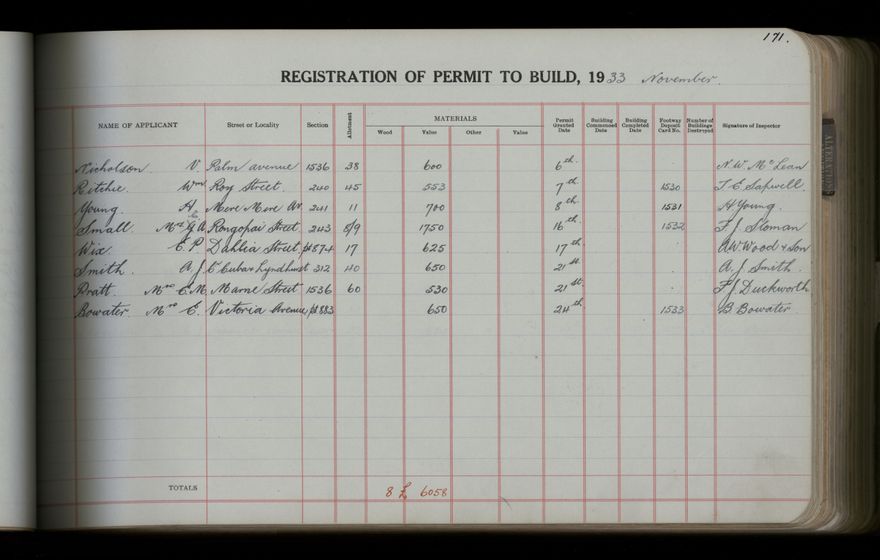 171.
REGISTRATION OF PERMIT TO BUILD, 1933 November.
NAME OF APPLICANT Street or Locality Section Allotment MATERIALS Wood Value Other Value Permit Granted Date Building Commenced Date Building Completed Date Footway Deposit Card No. Number of Buildings Destroyed Signature of Inspector
Nicholson V. Palm avenue 1536 38 600 6th. N. W. Mc Lean
Ritchie Wm Roy Street. 240 45 553 7th. 1530 T. E. Sapwell.
Young. H. Mere Mere Av. 241 11 700 8th 1531 H Young.
Small. Mrs G A Rongopai Street. 243 8/9 1750 16th 1532 F. J. Sloman
Wix. E. P Dahlia Street, 17 625 17th A.W. Wood & Son
Smith. A. J Cuba & Lyndhurst 312 40 650 21st. A. J. Smith.
Pratt. Mrs E. M. Marne Street 1536 60 530 21st. F. J. Duckworth
Bowater. Mrs E. Victoria Avenue 650 24th 1533 B. Bowater
TOTALS 8 £ 6058
ALTERATIONS